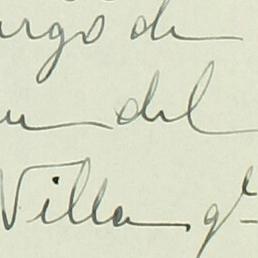 urgo de
del
Villa